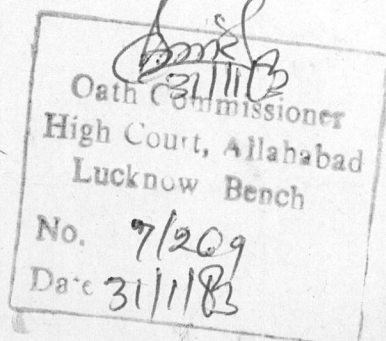 31/1/83
Oath Commissioner
High Court, Allahabad
Lucknow Bench
No. 7/209
Date 31/1/83